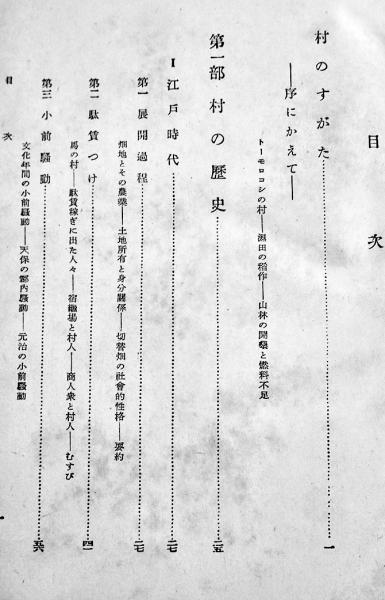 目次
村のすがた……一
――序にかえて――
トーモロコシの村――濕田の稻作――山林の開墾と燃料不足
第一部 村の歷史……二五
I 江戸時代……二七
第一 展開過程……二七
畑地とその農業――土地所有と身分關係――切替畑の社會的性格――要約
第二 駄賃つけ……四一
馬の村――駄賃稼ぎに出た人々――宿繼場と村人――商人衆と村人――むすび
第三 小前騷動……五六
文化年間の小前騷動――天保の郡內騷動――元治の小前騷動
目次
一